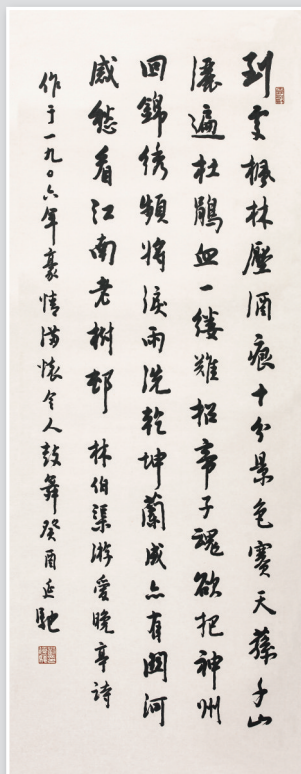 到處楓林壓酒痕十分景色賽天蓀千山
灑遍杜鵑血一縷難招帝子魂欲把神州
回錦綉頻將淚雨洗乾坤蘭成亦有關河
感愁看江南老樹邨 林伯渠游愛晚亭詩
作于一九〇六年豪情滿懷令人鼓舞癸酉延馳